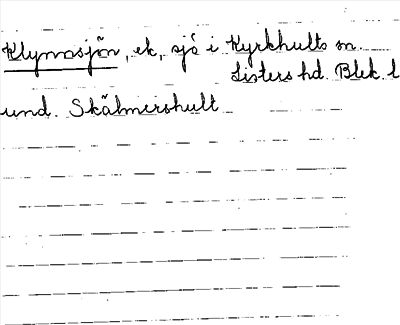 Klymasjön, ek, sjö i Kyrkhults sn.
Listers hd. Blek. l
und. Skälmershult